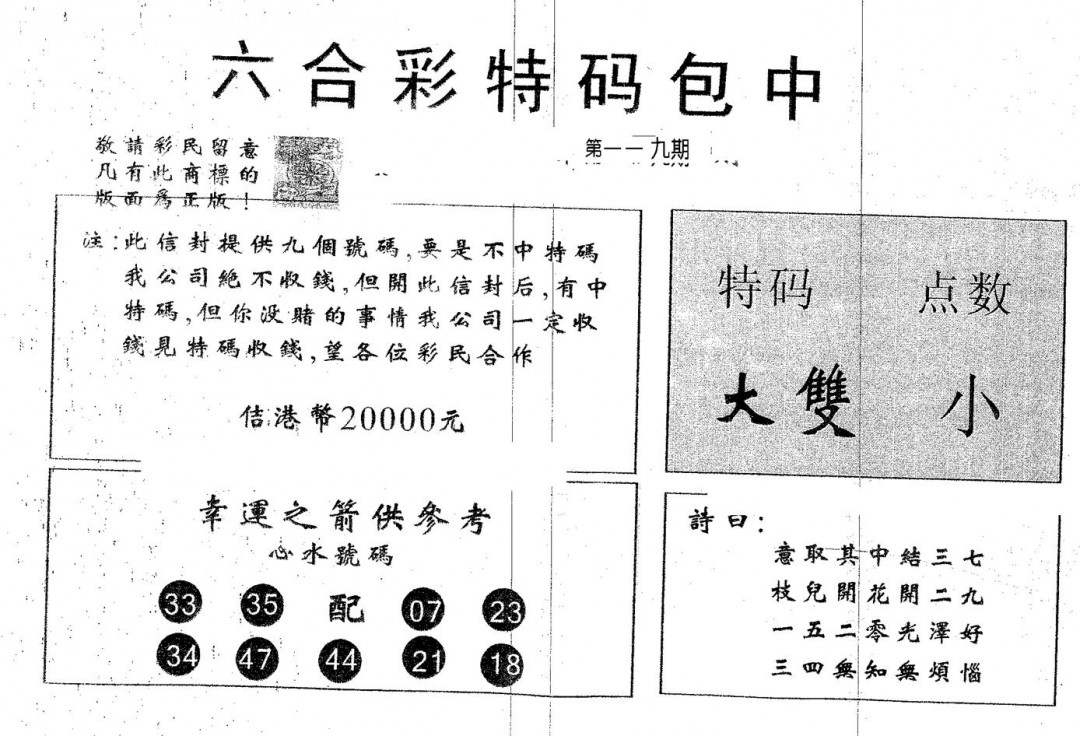 六合彩特码包中
第一一九期
敬請彩民留意
凡有此商標的
版面爲正版！
注：此信封提供九個號碼,要是不中特碼
我公司絶不收錢,但開此信封后,有中
特碼,但你没賭的事情我公司一定收
錢見特碼收錢,望各位彩民合作
佶港幣20000元
特码 点数
大雙 小
幸運之箭供參考
心水號碼
33 35 配 07 23
34 47 44 21 18
詩曰：
意取其中結三七
枝兒開花開二九
一五二零光澤好
三四無知無煩惱